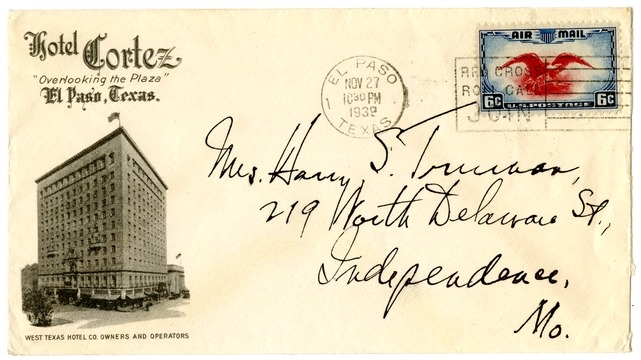 Hotel Cortez
"Overlooking the Plaza"
El Paso, Texas.
EL PASO
1
NOV 27
1030 PM
1939
TEXAS
RED CROSS
ROLL CALL
JOIN
AIR MAIL
6¢ U.S. POSTAGE 6¢
Mrs. Harry S. Truman,
219 North Delaware St.,
Independence,
Mo.
WEST TEXAS HOTEL CO. OWNERS AND OPERATORS